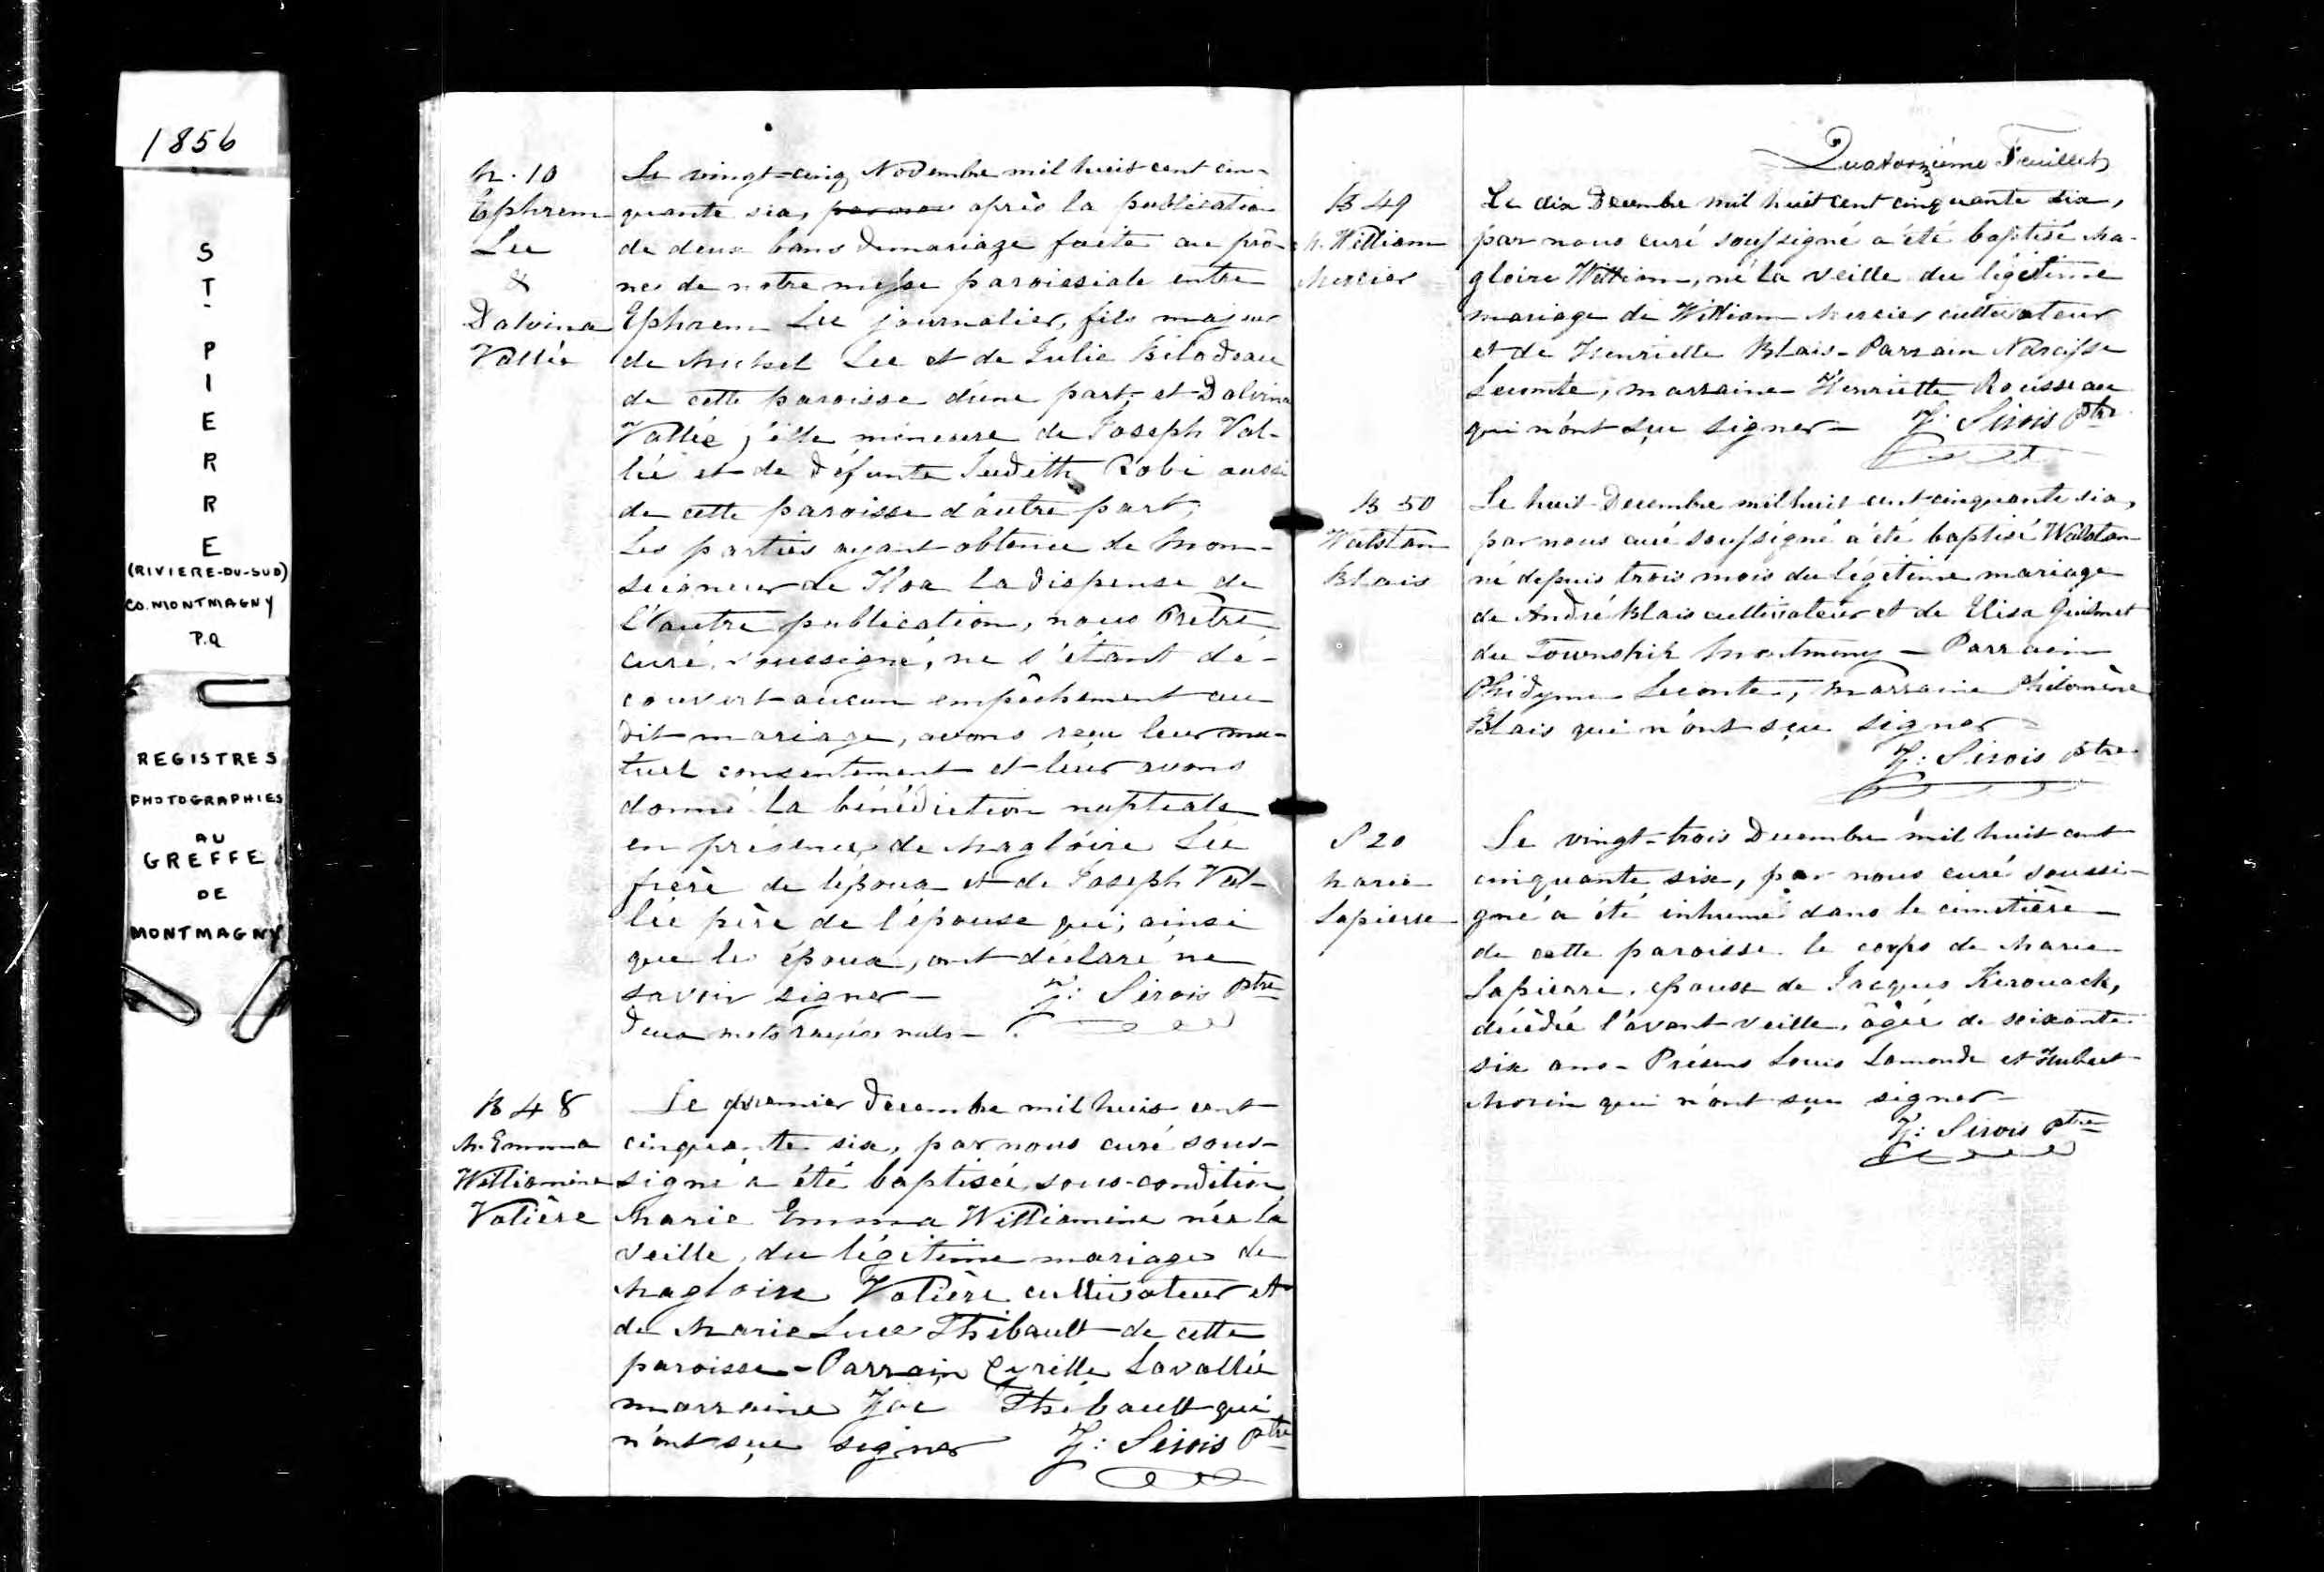 1856
S
T
-
P
I
E
R
R
E
(RIVIERE-DU-SUD)
CO. MONTMAGNY
P.Q
REGISTRES
PHOTOGRAPHIES
AU
GREFFE
DE
MONTMAGNY
M. 10
Éphrem
Lee
&
Dalvina
Vallée
Le vingt-cinq Novembre mil huit cent cin-
quante six, après la publication
de deux bans de mariage faite au prô-
ne de notre messe paroissiale entre
Ephrem Lee journalier, fils majeur
de Michel Lee et de Julie Bilodeau
de cette paroisse d'une part, et Dalvina
Vallée fille mineure de Joseph Val-
lée et de défunte Judith Robi aussi
de cette paroisse d'autre part;
Les parties ayant obtenue de Mon-
seigneur de Tloa la dispense de
l'autre publication, nous Prêtre
curé, soussigné, ne s'étant dé-
couvert aucun empêchement au
dit mariage, avons reçu leur mu-
tuel consentement et leur avons
donné la bénédiction nuptiale
en présence de Magloire Lee
frère de l'époux et de Joseph Val-
lée père de l'épouse qui, ainsi
que les époux, ont déclaré ne
savoir signer - Z: Sirois Ptre
deux mots rayés nuls -
B 48
M. Emma
Williamine
Valière
Le premier Decembre mil huit cent
cinquante six, par nous curé sous-
signé a été baptisée sous-condition
Marie Emma Williamine née la
veille, du légitime mariage de
Magloire Valière cultivateur et
de Marie Luce Thibault de cette
paroisse - Parrain Cyrille Lavallée
marraine Zoé Thibault qui
n'ont sçu signer Z: Sirois Ptre
Quatorzième Feuillet
B 49
M. William
Mercier
Le dix Decembre mil huit cent cinquante six,
par nous curé soussigné a été baptisé Ma-
gloire William, né la veille du légitime
mariage de William Mercier cultivateur
et de Henriette Blais - Parrain Narcisse
Lecomte, marraine Henriette Rousseau
qui n'ont sçu signer - Z: Sirois Ptre
B 50
Walstan
Blais
Le huit Decembre mil huit cent cinquante six,
par nous curé soussigné a été baptisé Walstan
né depuis trois mois du légitime mariage
de André Blais cultivateur et de Elisa Guilmet
du Township Montminy - Parrain
Phidyme Lecomte, marraine Philomène
Blais qui n'ont sçu signer -
Z: Sirois Ptre
S 20
Marie
Lapierre
Le vingt-trois Decembre mil huit cent
cinquante six, par nous curé soussi-
gné a été inhumé dans le cimetière
de cette paroisse le corps de Marie
Lapierre, épouse de Jacques Kerouack,
décédée l'avant-veille, âgée de soixante
six ans - Présens Louis Lamonde et Hubert
Morin qui n'ont sçu signer -
Z: Sirois Ptre